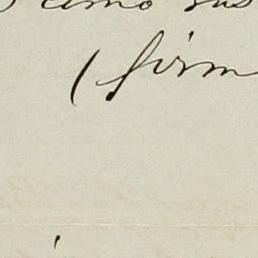 como sus
(firm